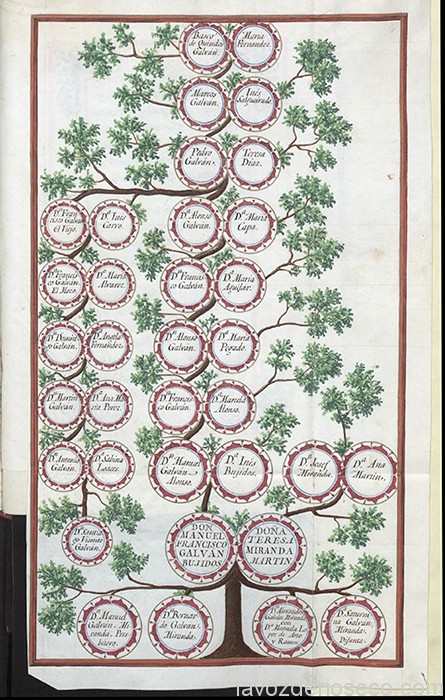 Basco
de Quiridos
Galván.
Maria
Fernandez.
Marcos
Galván.
Inés
Salgueirado
Pedro
Galván.
Teresa
Diaz.
Dn. Fran-
cisco Galván
El Viejo.
Da. Ines
Carvo.
Dn. Alonso
Galván.
Da. Maria
Capa.
Dn. Francis-
co Galván
El Mozo.
Da. Maria
Alvarez.
Dn. Francis-
co Galván.
Da. Maria
Aguilar.
Dn. Domin-
go Galván.
Da. Angela
Fernandez.
Dn. Alonso
Galván.
Da. Maria
Posado.
Dn. Martin
Galván.
Da. Ana Ma-
ria Perez.
Dn. Francis-
co Galván.
Da. Marcela
Alonso.
Dn. Antonio
Galván.
Da. Sabina
Loaces.
Dn. Manuel
Galván
Alonso.
Da. Inés
Bujidos.
Dn. Josef
Miranda.
Da. Ana
Martin.
Dn. Santia-
go Vicente
Galván.
DON
MANUEL
FRANCISCO
GALVÁN
BUJIDOS
DOÑA
TERESA
MIRANDA
MARTIN.
Dn. Manuel
Galván Mi-
randa, Pres-
bitero.
Dn. Bernar-
do Galván,
Miranda.
Dn. Alexandro
Galván Miranda
con
Da. Manuela Lo-
pez de Azo
y Ramos.
Da. Saturni-
na Galván
Miranda,
Difunta.
lavozdelbierzo.com